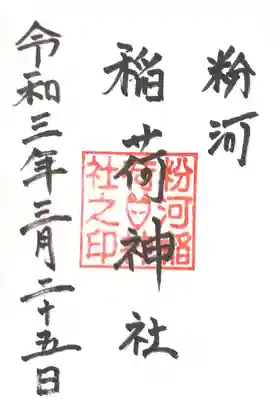 粉河
稲荷神社
粉河稲
荷神
社之印
令和三年三月二十五日